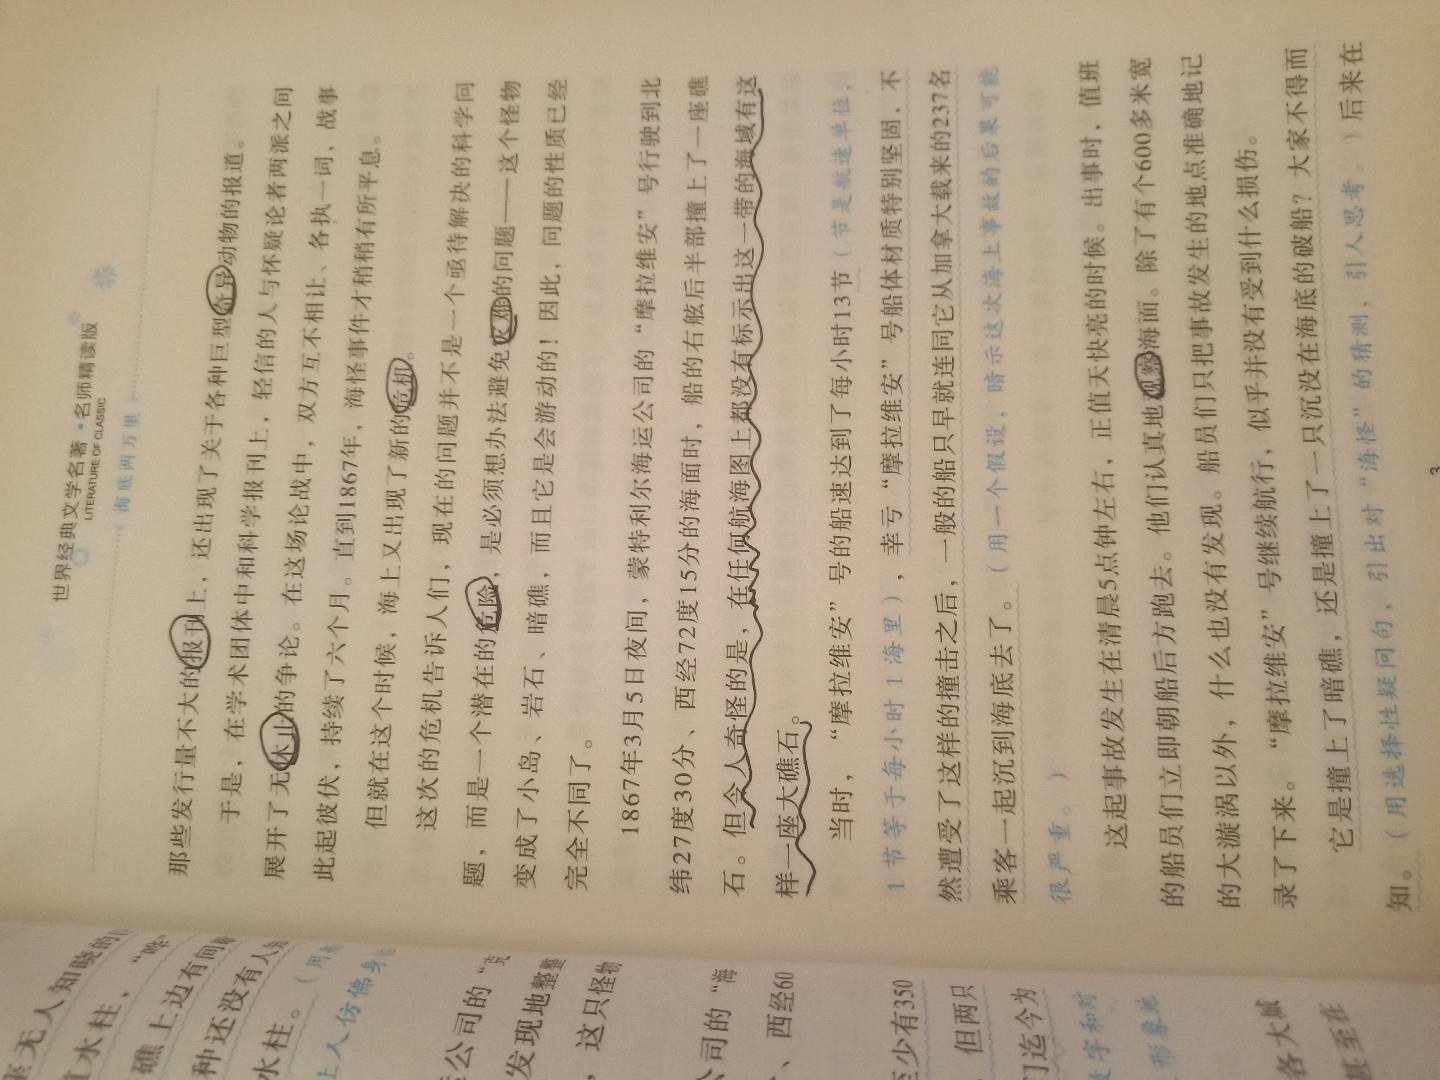 世界经典文学名著·名师精读版
LITERATURE OF CLASSIC
海底两万里
那些发行量不大的报刊上，还出现了关于各种巨型奇异动物的报道。
于是，在学术团体中和科学报刊上，轻信的人与怀疑论者两派之间
展开了无休止的争论。在这场论战中，双方互不相让、各执一词，战事
此起彼伏，持续了六个月。直到1867年，海怪事件才稍稍有所平息。
但就在这个时候，海上又出现了新的危机。
这次的危机告诉人们，现在的问题并不是一个亟待解决的科学问
题，而是一个潜在的危险，是必须想办法避免灾难的问题——这个怪物
变成了小岛、岩石、暗礁，而且它是会游动的！因此，问题的性质已经
完全不同了。
1867年3月5日夜间，蒙特利尔海运公司的“摩拉维安”号行驶到北
纬27度30分、西经72度15分的海面时，船的右舷后半部撞上了一座礁
石。但令人奇怪的是，在任何航海图上都没有标示出这一带的海域有这
样一座大礁石。
当时，“摩拉维安”号的船速达到了每小时13节（节是航速单位，
1节等于每小时1海里），幸亏“摩拉维安”号船体材质特别坚固，不
然遭受了这样的撞击之后，一般的船只早就连同它从加拿大载来的237名
乘客一起沉到海底去了。（用一个假设，暗示这次海上事故的后果可能
很严重。）
这起事故发生在清晨5点钟左右，正值天快亮的时候。出事时，值班
的船员们立即朝船后方跑去。他们认真地观察海面。除了有个600多米宽
的大漩涡以外，什么也没有发现。船员们只把事故发生的地点准确地记
录了下来。“摩拉维安”号继续航行，似乎并没有受到什么损伤。
它是撞上了暗礁，还是撞上了一只沉没在海底的破船？大家不得而
知。（用选择性疑问句，引出对“海怪”的猜测，引人思考。）后来在
3
无人知晓的
水柱，“
礁上边有间
种还没有人
水柱。（用
上人仿佛身
公司的“
发现地整整
，这只怪物
公司的“海
、西经60
至少有350
但两只
们迄今为
数字和对
形象地
各大城
甚至在